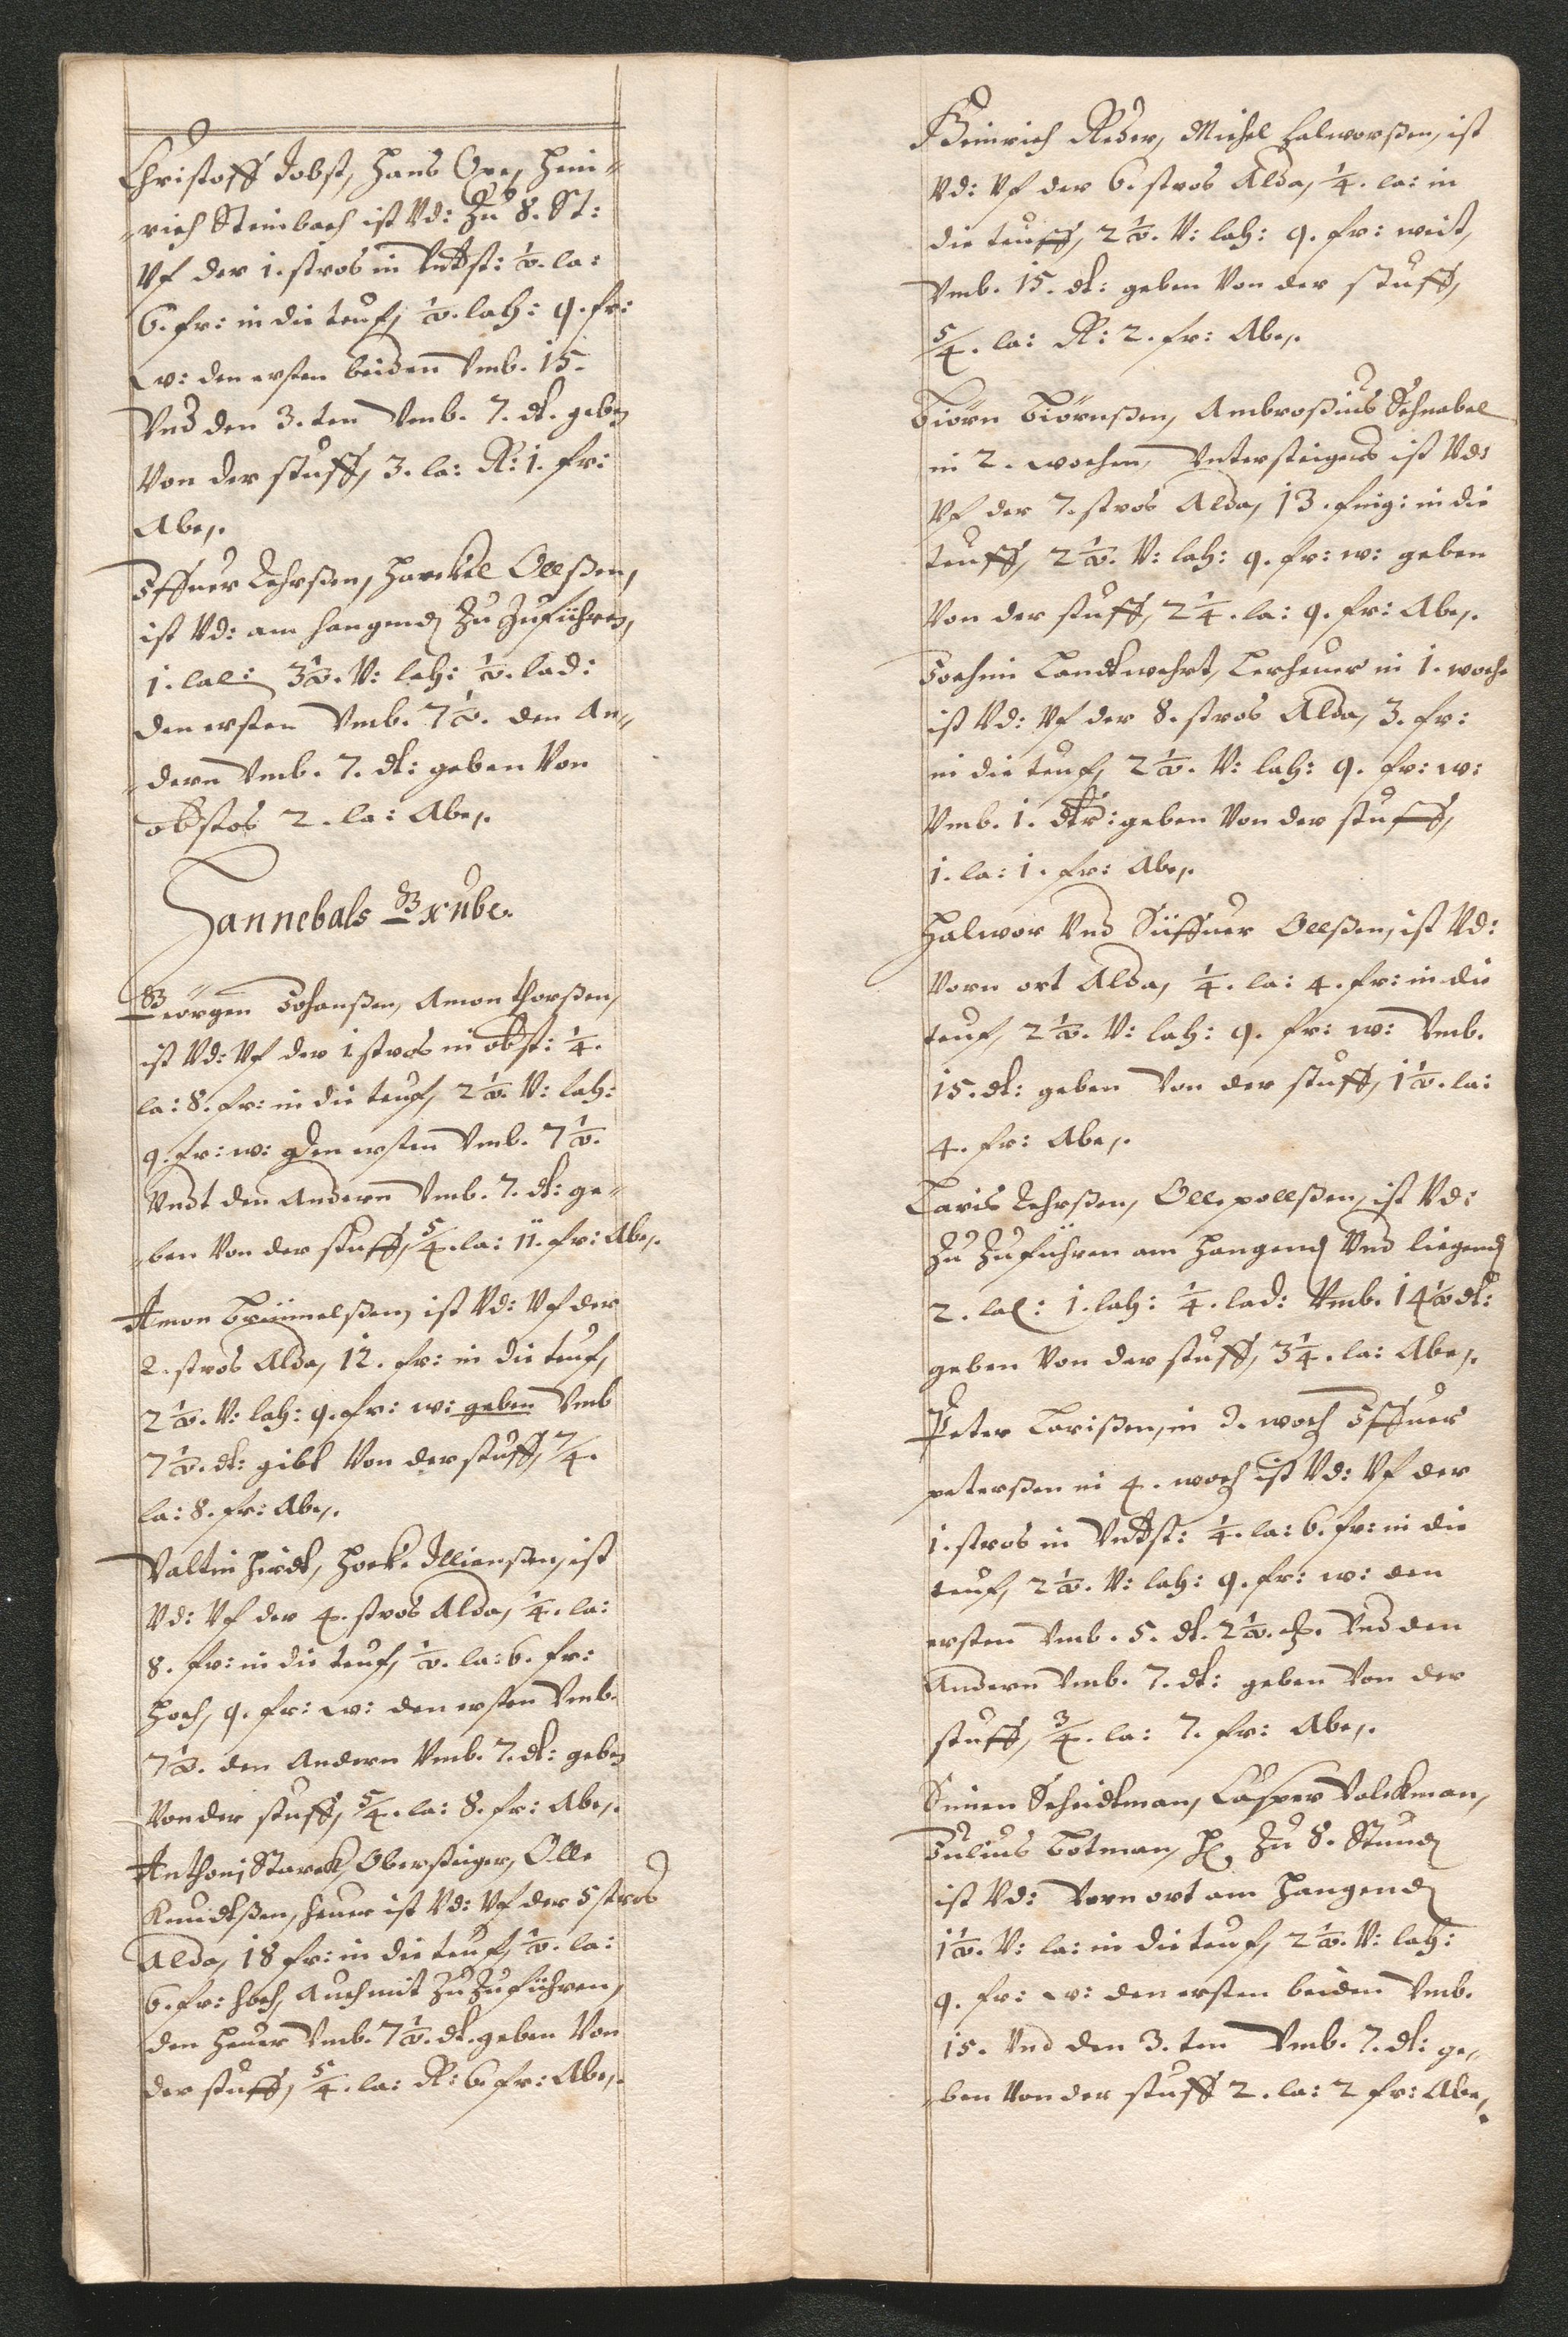 Christoff Jobst, Hans Ox, Hein„
„rich Steinbach ist Vd: Zu 8. St:
Vf der 1. stros in Vndst: ½. la:
6. fr: in die teuf, ½. lach: 9. fr:
w: den ersten beiden Vmb. 15.
Vnd den 3.ten Vmb. 7. dl. geben
Von der stuff, 3. la: R: 1. fr:
Abe,.
Ellßen,
ist Vd: am hangend Zu Zuführen,
1. lal: 3½. V: lach: ½. lad:
den ersten Vmb. 7½. den An„
„dern Vmb. 7. dl: geben Von
obstos 2. la: Abe,.
Hannebals Grube.
Georgen Johanßen, Amon thorßen,
ist Vd: Vf der 1 stros in obst: ¼.
la: 8. fr: in die teuf, 2½. V: lach:
9. fr: w: den ersten Vmb. 7½.
Vndt den Andern Vmb. 7. dl: ge„
„ben Von der stuff, 5/4. la: 11. fr: Abe,.
Amon ist Vd: Vf der
2. stros Alda, 12. fr: in die teuf,
2½. V: lach: 9. fr: w: geben Vmb
7½. dl: gibt Von der stuff, 7/4.
la: 8. fr: Abe,.
Valtin ist
Vd: Vf der 4. stros Alda, ¼. la:
8. fr: in die teuf, ½. la: 6. fr:
hoch, 9. fr: w: den ersten Vmb.
7½. den Andern Vmb. 7. dl: geben
Von der stuff, 5/4. la: 8. fr: Abe,.
Anthonj Starck, Obersteiger, Olle
Knudtßen, heuer ist Vd: Vf der 5 stros
Alda, 18 fr: in die teuf, ½. la:
6. fr: hoch, Auch mit Zu Zuführen,
den heuer Vmb. 7½. dl. geben Von
der stuff, 5/4. la: R: 6. fr: Abe,.
Heinrich Reder, Michel Halworßen, ist
Vd: Vf der 6. stros Alda, ¼. la: in
die teuff, 2½. V: lach: 9. fr: weit,
Vmb. 15. dl: geben Von der stuff,
5/4. la: R: 2. fr: Abe,.
Biörn Biörnßen, Ambroßius Schnabel
in 2. wochen, Vntersteiger ist Vd:
Vf der 7. stros Alda, 13. fing: in die
teuff, 2½. V: lach: 9. fr: w: geben
Von der stuff, 2¼. la: 9. fr: Abe,.
Jochim Landtwehrt, Lerheuer in 1. woche
ist Vd: Vf der 8. stros Alda, 3. fr:
in die teuf, 2½. V: lach: 9. fr: w:
Vmb. 1. dlr: geben Von der stuff,
1. la: 1. fr: Abe,.
Halwor Vnd Süffuer Ollßen, ist Vd:
Vorn ort Alda, ¼. la: 4. fr: in die
teuf, 2½. V: lach: 9. fr: w: Vmb.
15. dl: geben Von der stuff, 1½. la:
4. fr: Abe,.
Laris Olle pollßen, ist Vd:
Zu Zuführen am hangend Vnd liegend
2. lal: 1. lach: ¼. lad: Vmb. 14½ dl:
geben Von der stuff, 3¼. la: Abe,.
Peter Larißen, in woch
peterßen in 4. woch ist Vd: Vf der
1. stros in Vndst: ¼. la: 6. fr: in die
teuf, 2½. V: lach: 9. fr: w: den
ersten Vmb. 5. dl. 2½. Vnd den
Andern Vmb. 7. dl: geben Von der
stuff, ¾. la: 7. fr: Abe,.
Simen Scheidtman, Casper Volckman,
Julius Botman, Zu 8. Stund
ist Vd: Vorn ort am hangend
1½. V: la: in die teuf, 2½. V: lach:
9. fr: w: den ersten beiden Vmb.
15. Vnd den 3.ten Vmb. 7. dl: ge„
„ben Von der stuff 2. la: 2 fr: Abe,.